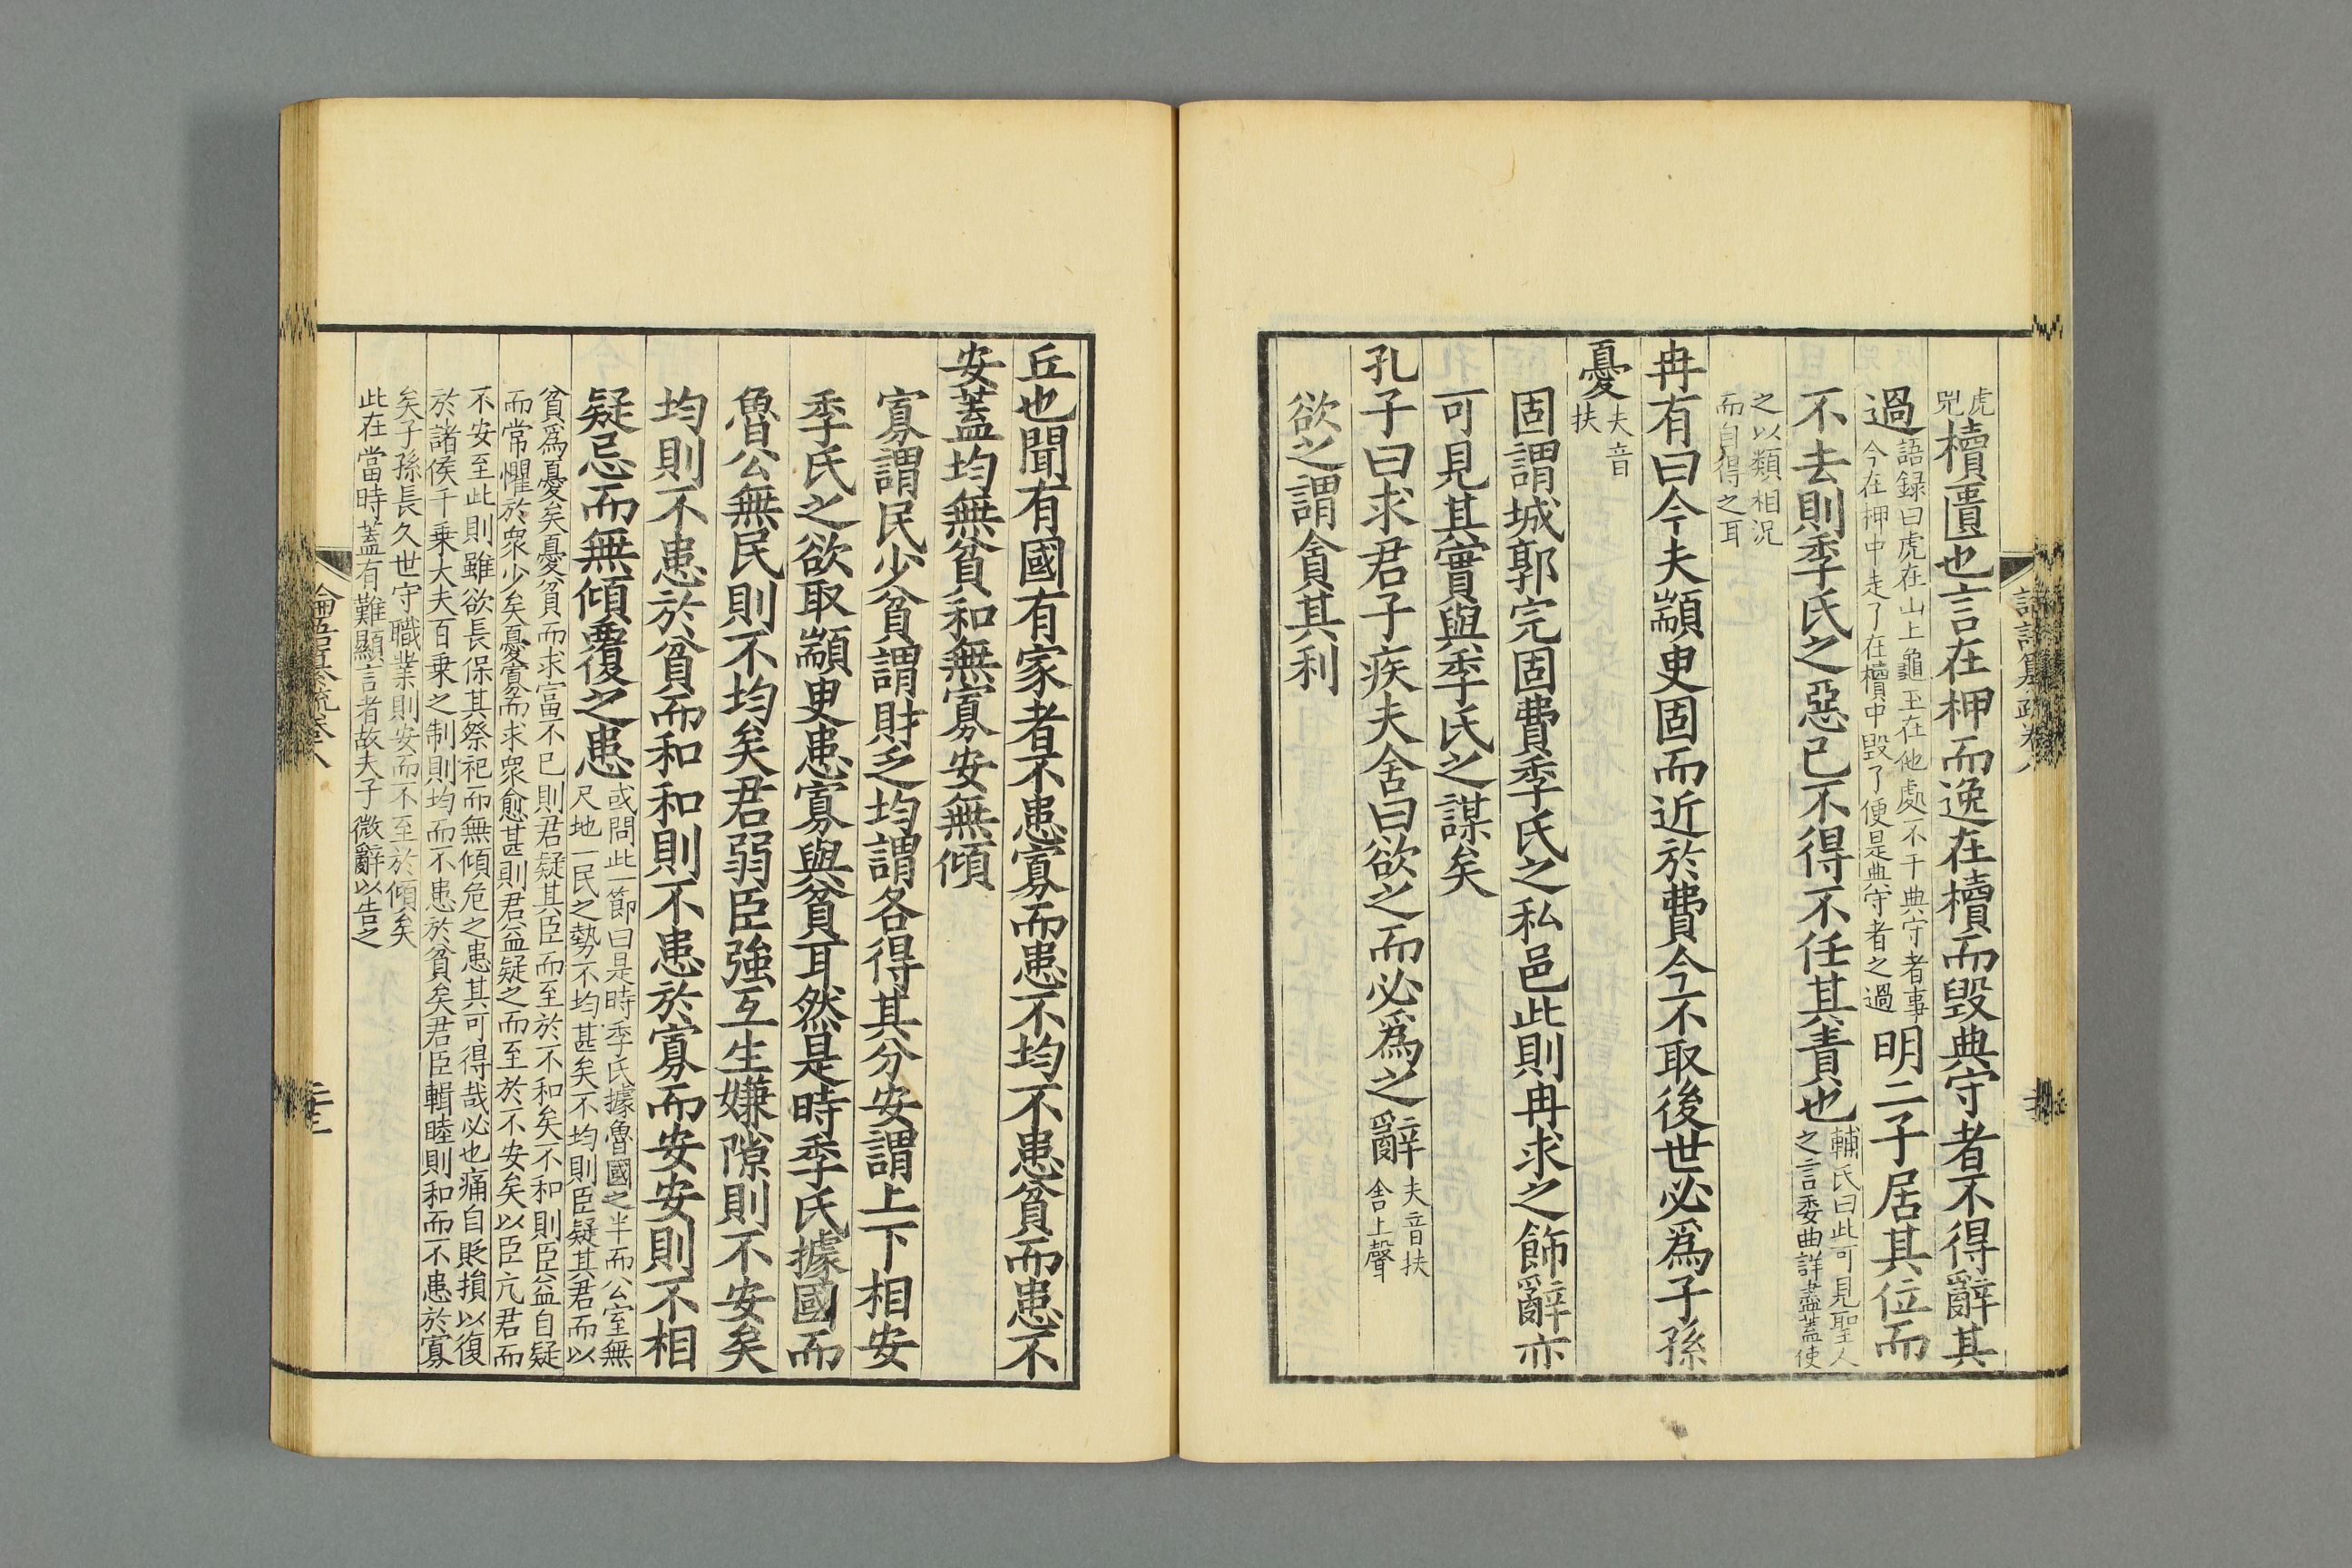 虎
兕櫝匱也言在柙而逸在櫝而毀典守者不得辭其
過語録曰虎在山上龜玉在他處不干典守者事
今在押中走了在櫝中毀了便是典守者之過明二子居其位而
不去則季氏之惡已不得不任其責也輔氏曰此可見聖人
之言委曲詳盡蓋使
之以類相況
而自得之耳
冉有曰今夫顓臾固而近於費今不取後世必爲子孫
憂夫音
扶
固謂城郭完固費季氏之私邑此則冉求之飾辭亦
可見其實與季氏之謀矣
孔子曰求君子疾夫舍曰欲之而必爲之辭夫音扶
舍上聲
欲之謂貪其利
丘也聞有國有家者不患寡而患不均不患貧而患不
安蓋均無貧和無寡安無傾
寡謂民少貧謂財乏均謂各得其分安謂上下相安
季氏之欲取顓臾患寡與貧耳然是時季氏據國而
魯公無民則不均矣君弱臣強互生嫌隙則不安矣
均則不患於貧而和和則不患於寡而安安則不相
疑忌而無傾覆之患或問此一節曰是時季氏據魯國之半而公室無
尺地一民之勢不均甚矣不均則臣疑其君而以
貧爲憂矣憂貧而求富不已則君疑其臣而至於不和矣不和則臣益自疑
而常懼於衆少矣憂寡而求衆愈甚則君益疑之而至於不安矣以臣亢君而
不安至此則雖欲長保其祭祀而無傾危之患其可得哉必也痛自貶損以復
於諸侯千乗大夫百乗之制則均而不患於貧矣君臣輯睦則和而不患於寡
矣子孫長久世守職業則安而不至於傾矣
此在當時蓋有難顯言者故夫子微辭以告之